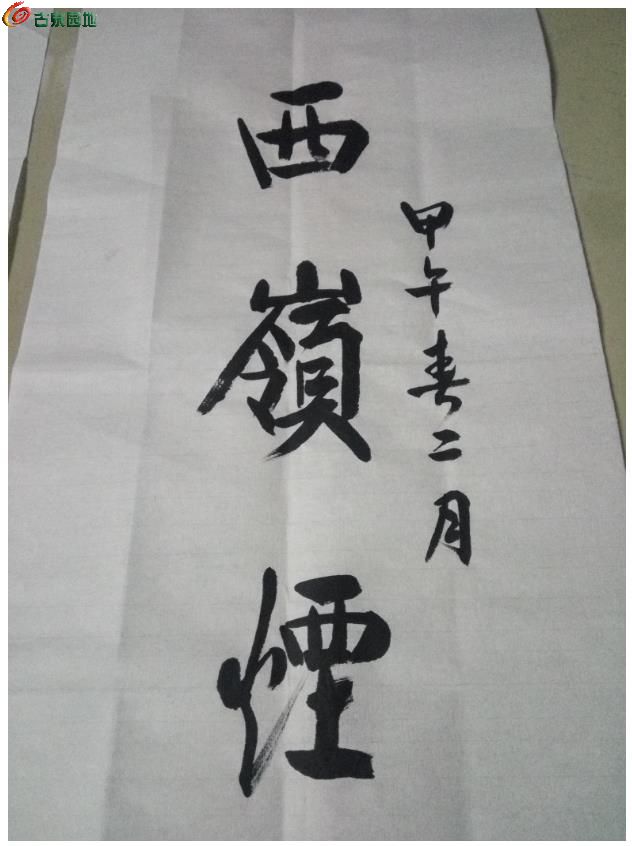 古泉园地
甲午春二月
西嶺煙